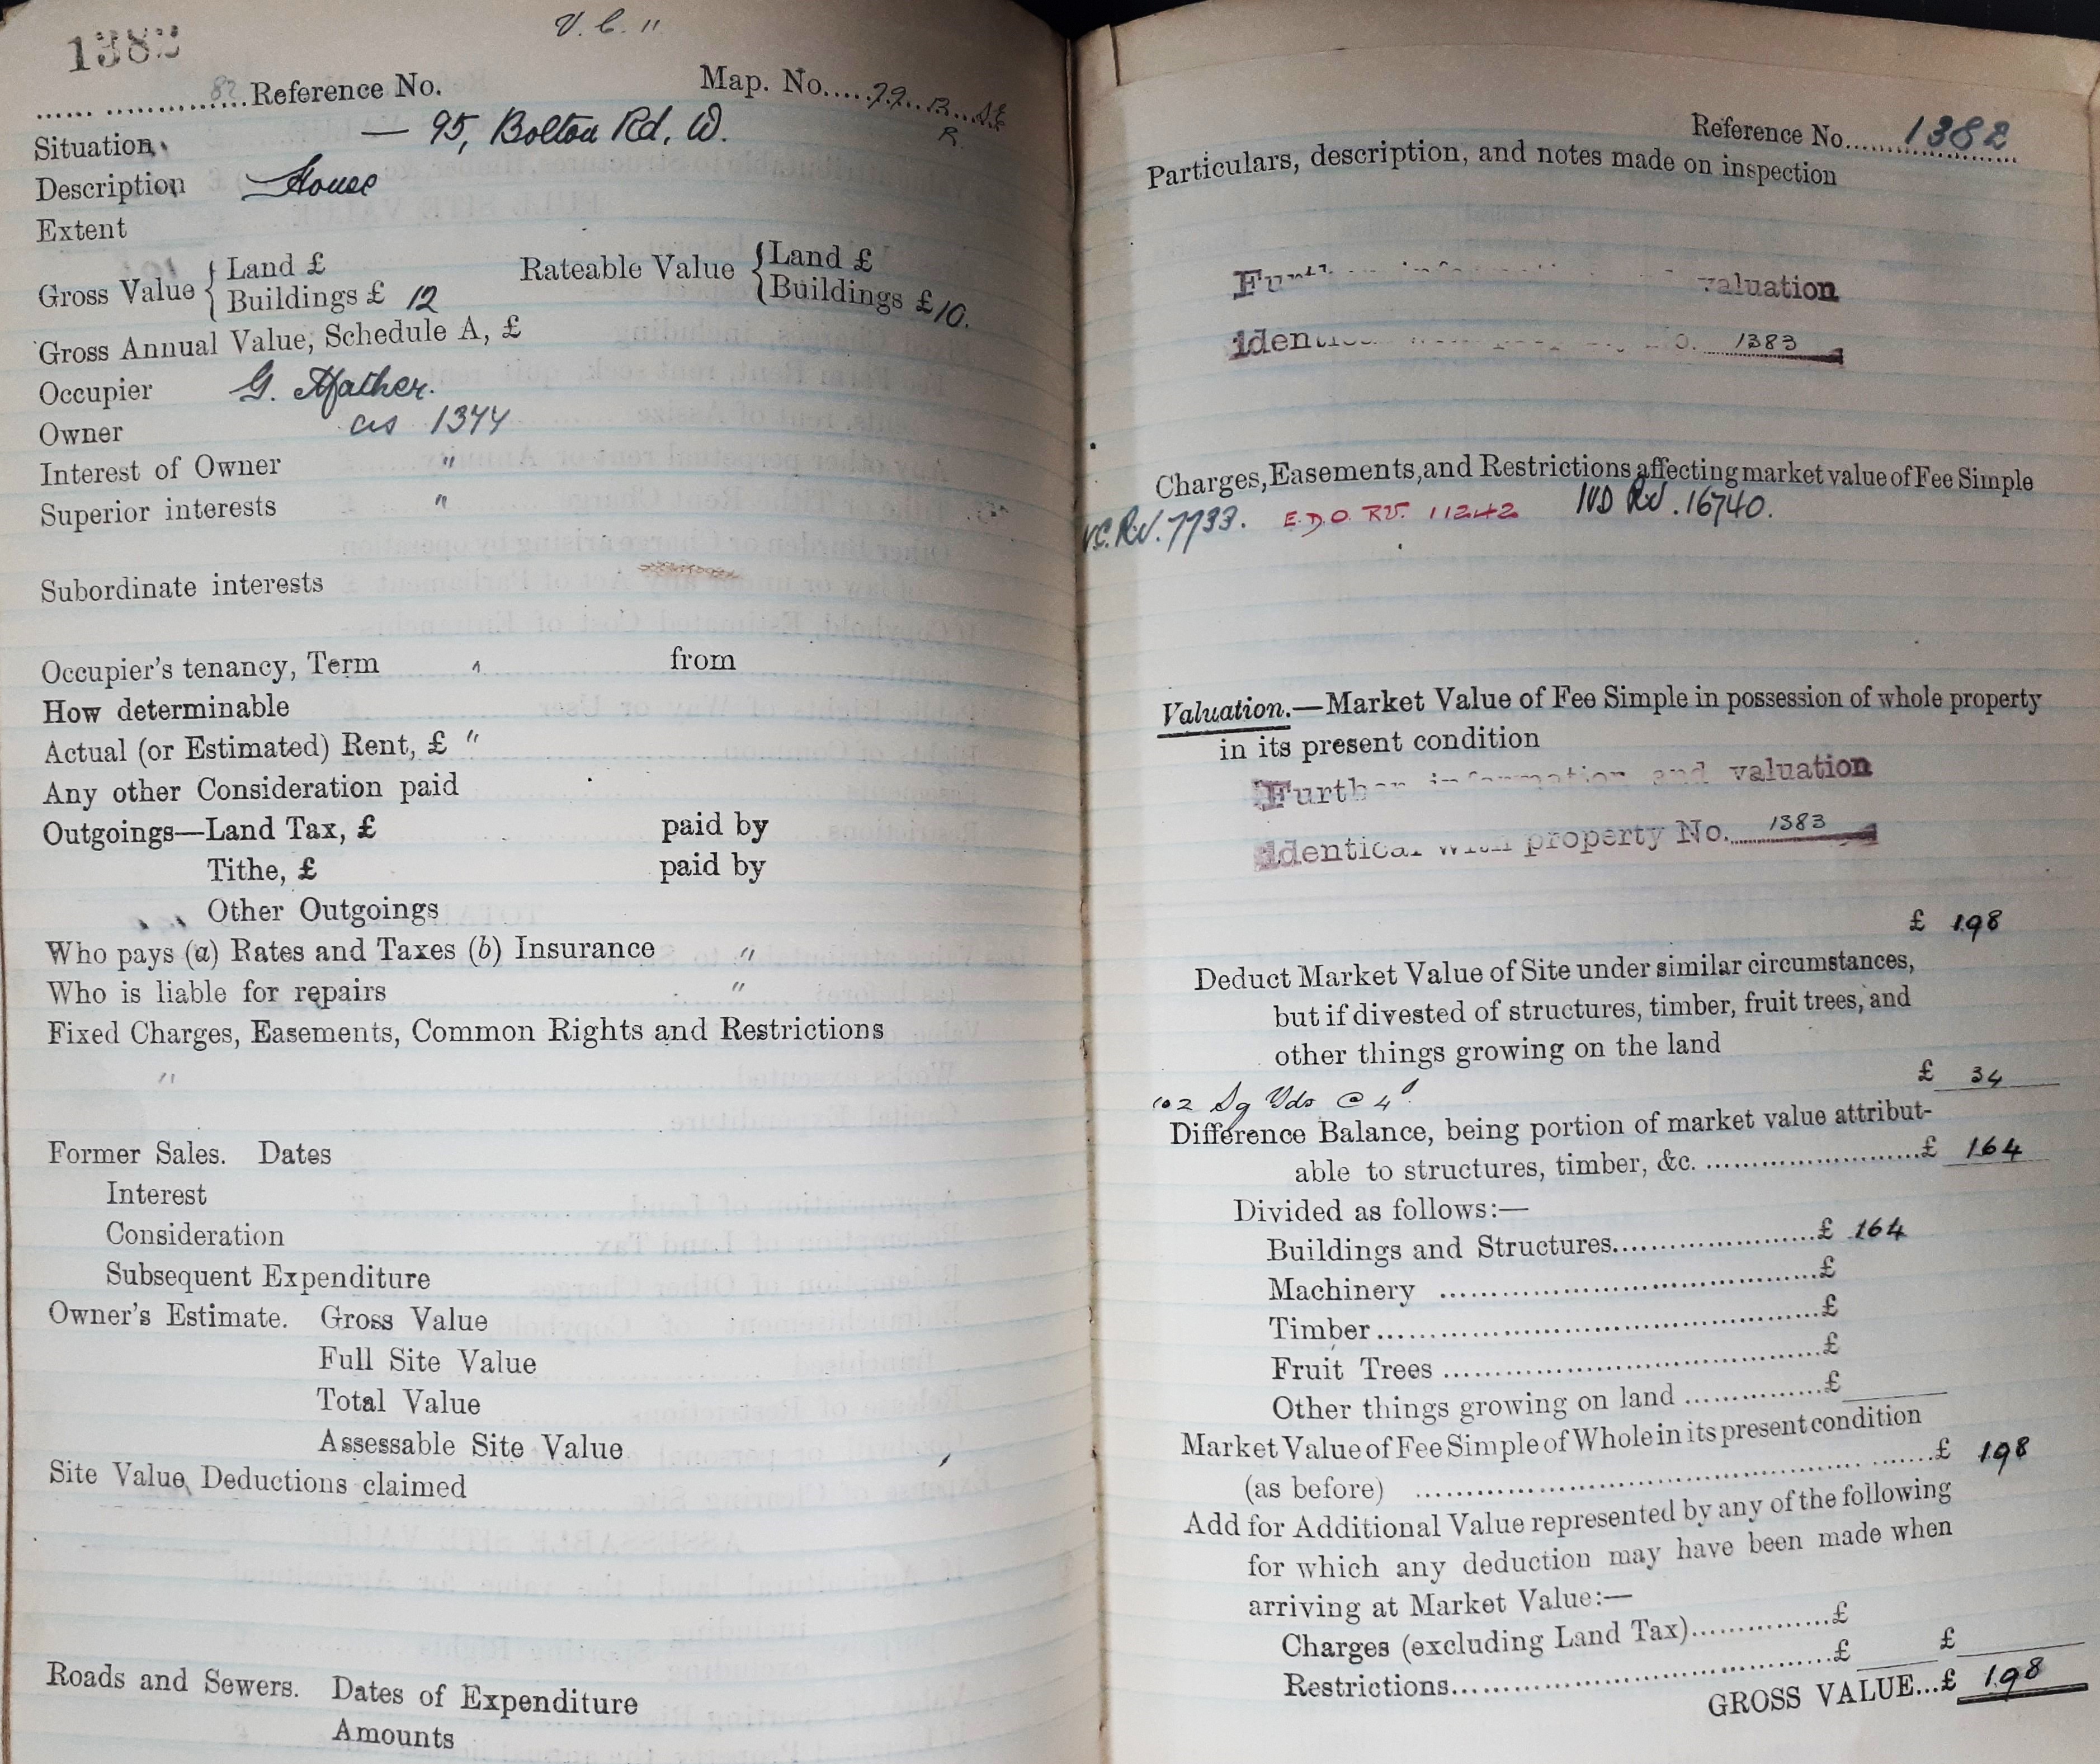 V. C. 11
1382
82 Reference No. Map. No. 99. 13. SE
R.
Situation — 95, Bolton Rd, W.
Description House
Extent
Gross Value { Land £
Buildings £ 12
Rateable Value { Land £
Buildings £ 10.
Gross Annual Value, Schedule A, £
Occupier G. Mather.
Owner as 1344
Interest of Owner "
Superior interests "
Subordinate interests
Occupier's tenancy, Term from
How determinable
Actual (or Estimated) Rent, £ "
Any other Consideration paid
Outgoings—Land Tax, £ paid by
Tithe, £ paid by
Other Outgoings
Who pays (a) Rates and Taxes (b) Insurance "
Who is liable for repairs "
Fixed Charges, Easements, Common Rights and Restrictions
"
Former Sales. Dates
Interest
Consideration
Subsequent Expenditure
Owner's Estimate. Gross Value
Full Site Value
Total Value
Assessable Site Value
Site Value Deductions claimed
Roads and Sewers. Dates of Expenditure
Amounts
Reference No. 1382
Particulars, description, and notes made on inspection
Further information and valuation
identical with property No. 1383
Charges, Easements, and Restrictions affecting market value of Fee Simple
V.C. RV. 7733. E.D.O. RV. 11242 IVD RV. 16740.
Valuation.—Market Value of Fee Simple in possession of whole property
in its present condition
Further information and valuation
identical with property No. 1383
£ 198
Deduct Market Value of Site under similar circumstances,
but if divested of structures, timber, fruit trees, and
other things growing on the land
£ 34
102 Sq Yds @ 4d
Difference Balance, being portion of market value attribut-
able to structures, timber, &c. £ 164
Divided as follows:—
Buildings and Structures £ 164
Machinery £
Timber £
Fruit Trees £
Other things growing on land £
Market Value of Fee Simple of Whole in its present condition
(as before) £ 198
Add for Additional Value represented by any of the following
for which any deduction may have been made when
arriving at Market Value:—
Charges (excluding Land Tax) £
Restrictions £ £
GROSS VALUE...£ 198